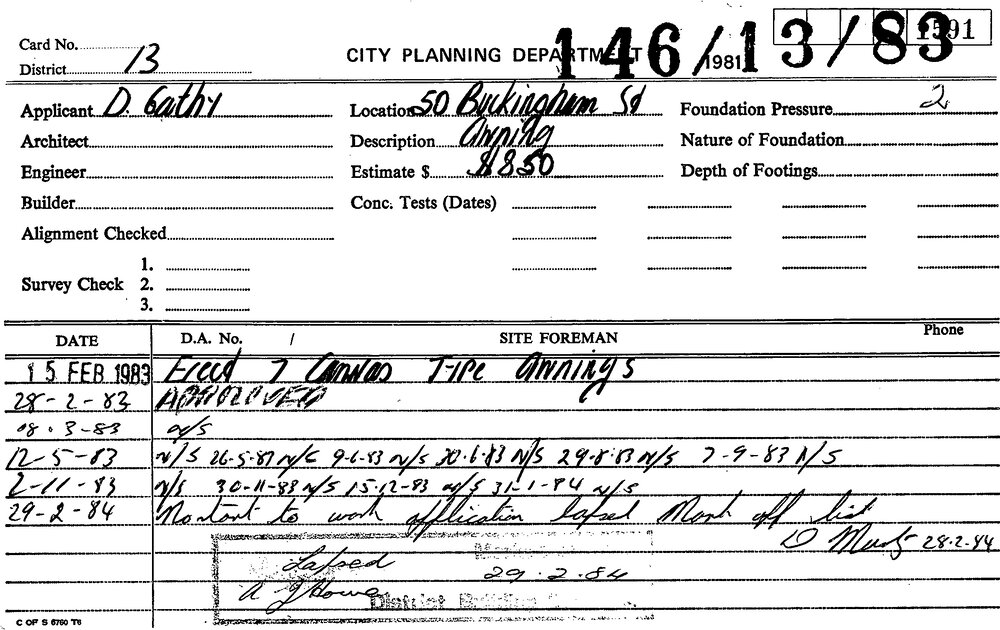 Card No. 146/13/83 1591
District 13 CITY PLANNING DEPARTMENT 1981
Applicant D. Gathy Location 50 Buckingham St Foundation Pressure 2
Architect Description Awning Nature of Foundation
Engineer Estimate $ $850 Depth of Footings
Builder Conc. Tests (Dates)
Alignment Checked
1.
Survey Check 2.
3.
DATE D.A. No. / SITE FOREMAN Phone
15 FEB 1983 Erect 7 Canvas Type Awnings
28-2-83 APPROVED
08-3-83 n/s
12-5-83 n/s 26-5-83 n/s 9-6-83 n/s 30-6-83 n/s 29-8-83 n/s 7-9-83 n/s
2-11-83 n/s 30-11-83 n/s 15-12-83 n/s 31-1-84 n/s
29-2-84 No start to work application lapsed Mark off list
28-2-84
Lapsed 29.2.84
A J Howe District Building
C OF S 6760 T6